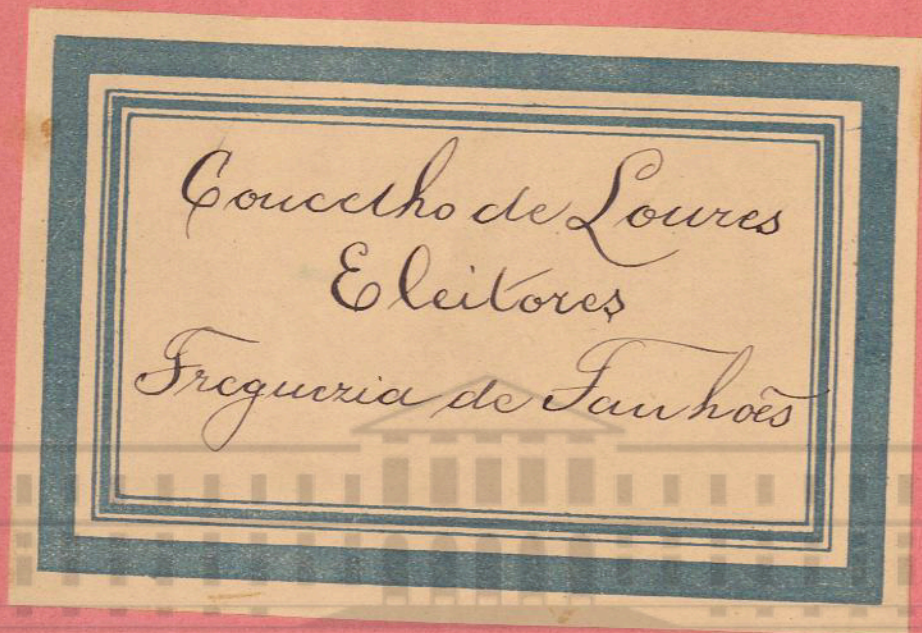 Concelho de Loures
Eleitores
Freguezia de Fanhões